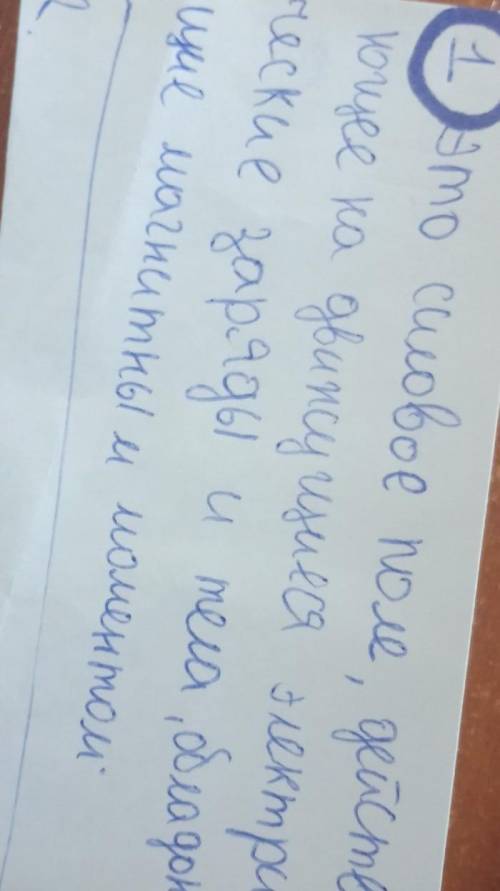 1 Это силовое поле, действ
ющее на движущиеся электри
ческие заряды и тела, облада
щие магнитным моментом.
2.